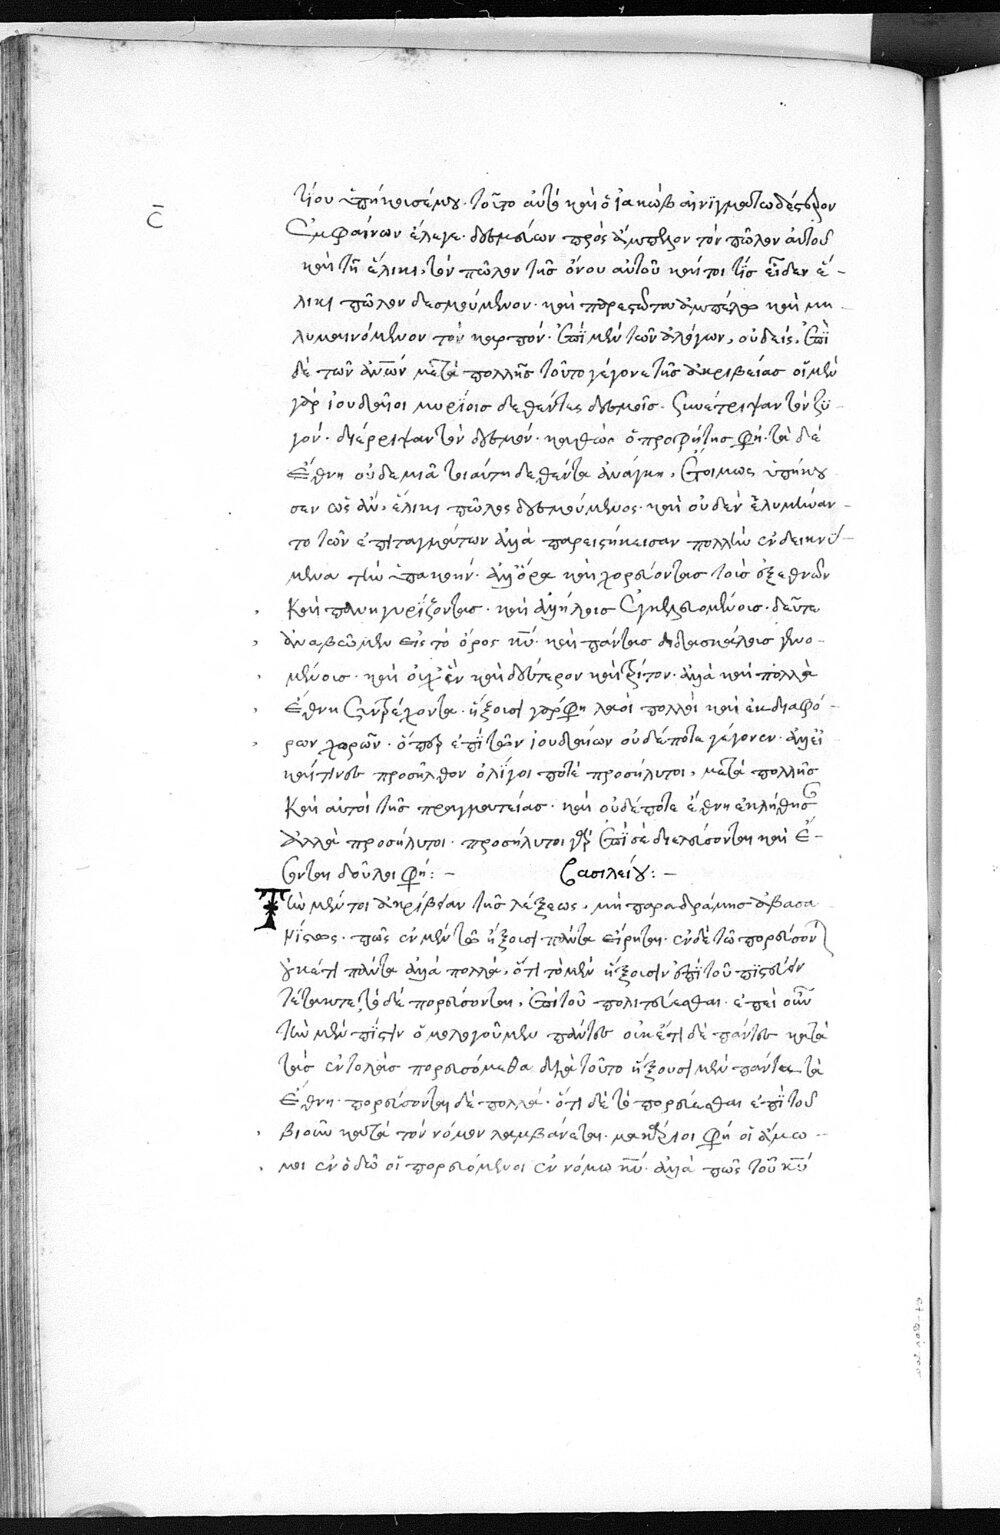 τίου ὑπήκουσέ μου· τοῦτο αὐτὸ καὶ ὁ ἰακὼβ αἰνιγματωδέστερον
ἐμφαίνων ἔλεγε· δεσμεύων πρὸς ἄμπελον τὸν πῶλον αὐτοῦ
καὶ τῇ ἕλικι, τὸν πῶλον τῆς ὄνου αὐτοῦ καίτοι τίς εἶδεν ἕ-
λικι πῶλον δεσμούμενον· καὶ παρεστῶτα ἀμπέλω καὶ μὴ
λυμαινόμενον τὸν καρπόν· ἐπὶ μὲν τῶν ἀλόγων, οὐδείς, ἐπὶ
δὲ τῶν ἀνων μετὰ πολλῆς τοῦτο γέγονε τῆς ἀκριβείας οἱ μὲν
γὰρ ἰουδαῖοι μυρίοις δεθέντες δεσμοῖς· συνέτριψαν τὸν ζυ-
γόν· διέρρηψαν τὸν δεσμόν· καθὼς ὁ προφήτης φη· τὰ δὲ
ἔθνη οὐδεμιᾶ τοιαύτη δεθέντα ἀνάγκη, ἑτοίμως ὑπήκου
σεν ὡς ἂν, ἕλικι πῶλος δεσμούμενος· καὶ οὐδὲν ἐλυμήναν-
το τῶν ἐπιταγμάτων ἀλλὰ παρειστήκεισαν πολλὴν ἐνδεικνύ-
μενα τὴν ὑπακοήν· ἀλλ' ὅρα καὶ χορεύοντας τοὺς ἐξ ἐθνῶν
καὶ πανηγυρίζοντας· καὶ ἀλλήλοις ἐγκελευομένους· δεῦτε
ἀναβῶμεν εἰς τὸ ὄρος κυ· καὶ πάντας διδασκάλους γινο-
μένους· καὶ οὐχ ἓν καὶ δεύτερον καὶ τρίτον· ἀλλὰ καὶ πολλὰ
ἔθνη συντρέχοντα· ἥξουσι γάρ φη λαοὶ πολλοὶ καὶ ἐκ διαφό-
ρων χωρῶν· ὅπερ ἐπὶ τῶν ἰουδαίων οὐδέποτε γέγονεν· ἀλλ' εἰ
καί τινες προσῆλθον ὀλίγοι ποτὲ προσήλυτοι, μετὰ πολλῆς
καὶ αὐτοὶ τῆς πραγματείας· καὶ οὐδέποτε ἔθνη ἐκλήθησ
ἀλλὰ προσήλυτοι· προσήλυτοι γὰρ ἐπὶ σὲ διελεύσονται καὶ ἔ-
σονται δοῦλοι φη:- βασιλείου:-
Τὴν μέντοι ἀκρίβειαν τῆς λέξεως, μὴ παραδράμης ἀβασα
νίστως· πῶς ἐν μὲν τῶ ἥξουσι πάντα εἴρηται· ἐν δὲ τῶ πορεύσοντ
οὐκέτι πάντα ἀλλὰ πολλά, ὅτι τὸ μὲν ἥξουσιν ἐπὶ τοῦ πιστεύειν
τέτακται, τὸ δὲ πορεύσονται, ἐπὶ τοῦ πολιτεύεσθαι· ἐπεὶ οὖν
τὴν μὲν πίστιν ὁμολογοῦμεν πάντες οὐκέτι δὲ πάντες κατὰ
τὰς ἐντολὰς πορευσόμεθα διὰ τοῦτο ἥξουσι μὲν πάντα τὰ
ἔθνη· πορεύσονται δὲ πολλά· ὅτι δὲ τὸ πορεύεσθαι ἐπὶ τοῦ
βιοῦν κατὰ τὸν νόμον λαμβάνεται· μακάριοι φη οἱ ἄμω-
μοι ἐν ὁδῶ οἱ πορευόμενοι ἐν νόμω κυ· ἀλλὰ πῶς τοῦ κυ